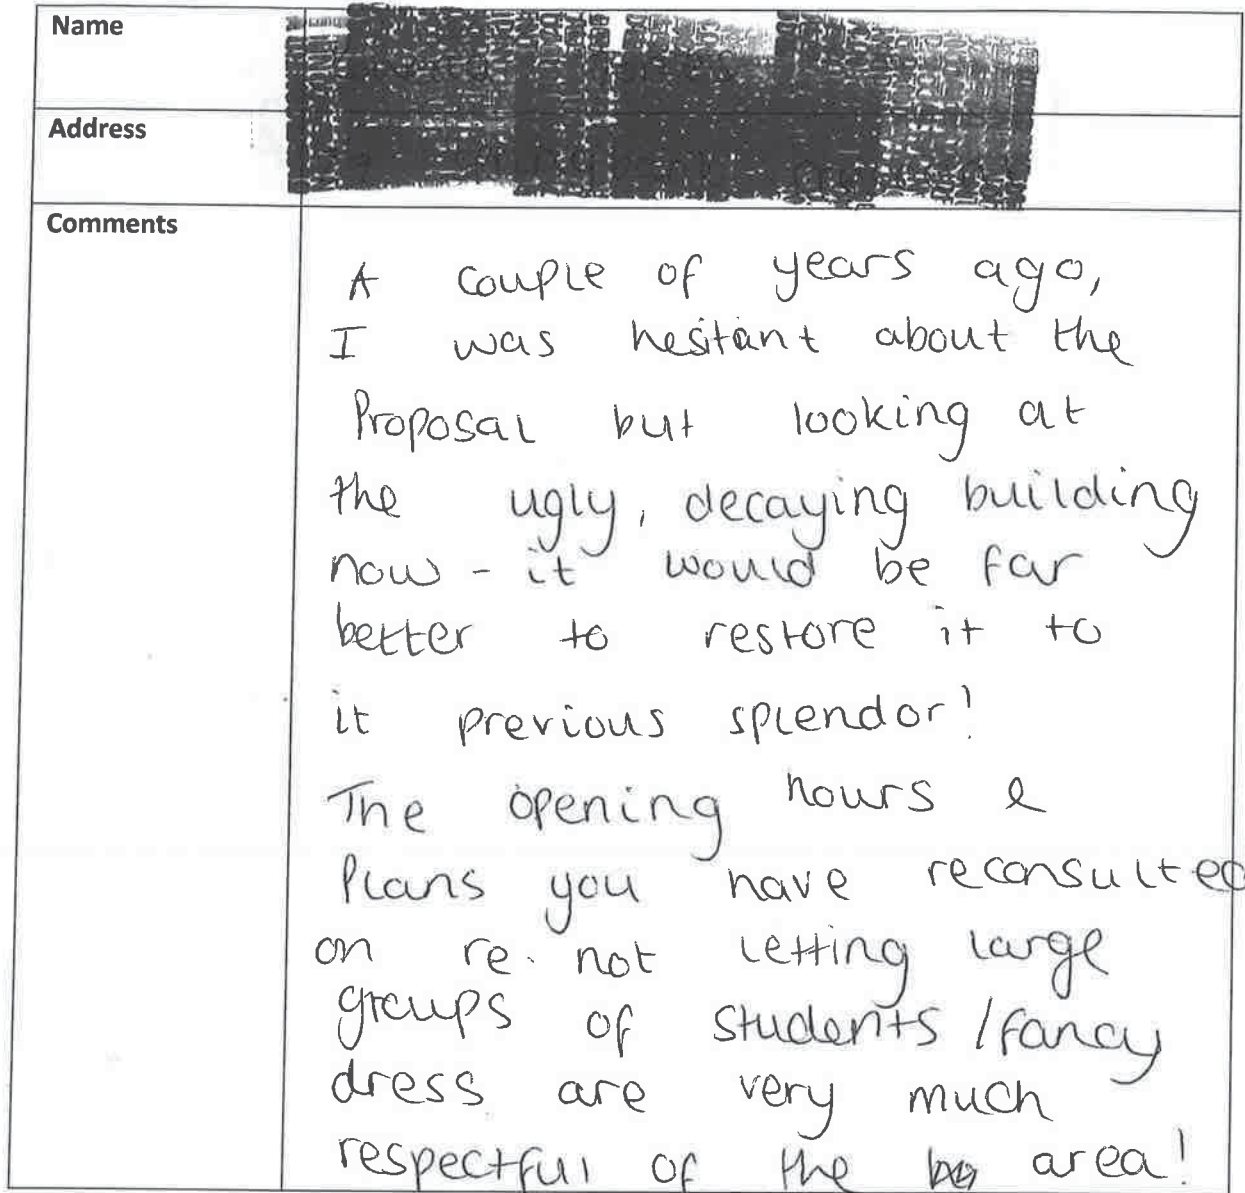 Name
Address
Comments
A couple of years ago,
I was hesitant about the
Proposal but looking at
the ugly, decaying building
now - it would be far
better to restore it to
it previous splendor!
The opening hours &
Plans you have reconsulted
on re. not letting large
groups of students / fancy
dress are very much
respectful of the area!